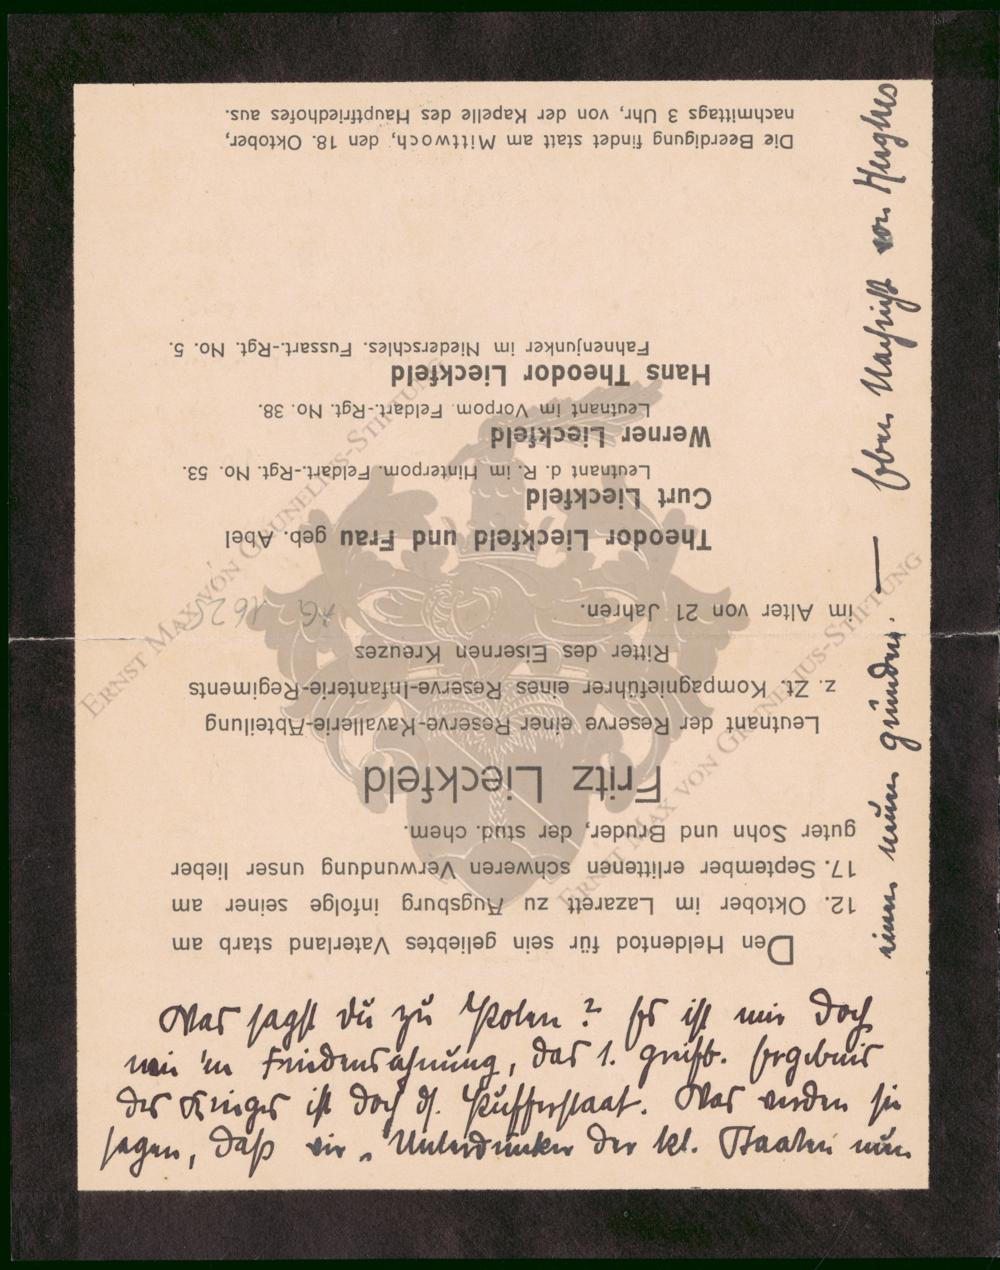 Den Heldentod für sein geliebtes Vaterland starb am
12. Oktober im Lazarett zu Augsburg infolge seiner am
17. September erlittenen schweren Verwundung unser lieber
guter Sohn und Bruder, der stud. chem.
Fritz Lieckfeld
Leutnant der Reserve einer Reserve-Kavallerie-Abteilung
z. Zt. Kompagnieführer eines Reserve-Infanterie-Regiments
Ritter des Eisernen Kreuzes
im Alter von 21 Jahren.
Theodor Lieckfeld und Frau geb. Abel
Curt Lieckfeld
Leutnant d. R. im Hinterpom. Feldart.-Rgt. No. 53
Werner Lieckfeld
Leutnant im Vorpom. Feldart.-Rgt. No. 38.
Hans Theodor Lieckfeld
Fahnenjunker im Niederschles. Fussart.-Rgt. No. 5.
Die Beerdigung findet statt am Mittwoch, den 18. Oktober,
nachmittags 3 Uhr, von der Kapelle des Hauptfriedhofes aus.
Was sagst du zu Polen? Es ist mir doch
wie 'n Friedensahnung, das 1. greifb. Ergebnis
des Krieges ist doch d. Pufferstaat. Was werden sie
sagen, daß wir „Unterdrücker der kl. Staaten nun
einen neuen gründen. — Eben Nachricht von Hughes
ERNST MAX VON GRUNELIUS-STIFTUNG
ERNST MAX VON GRUNELIUS-STIFTUNG